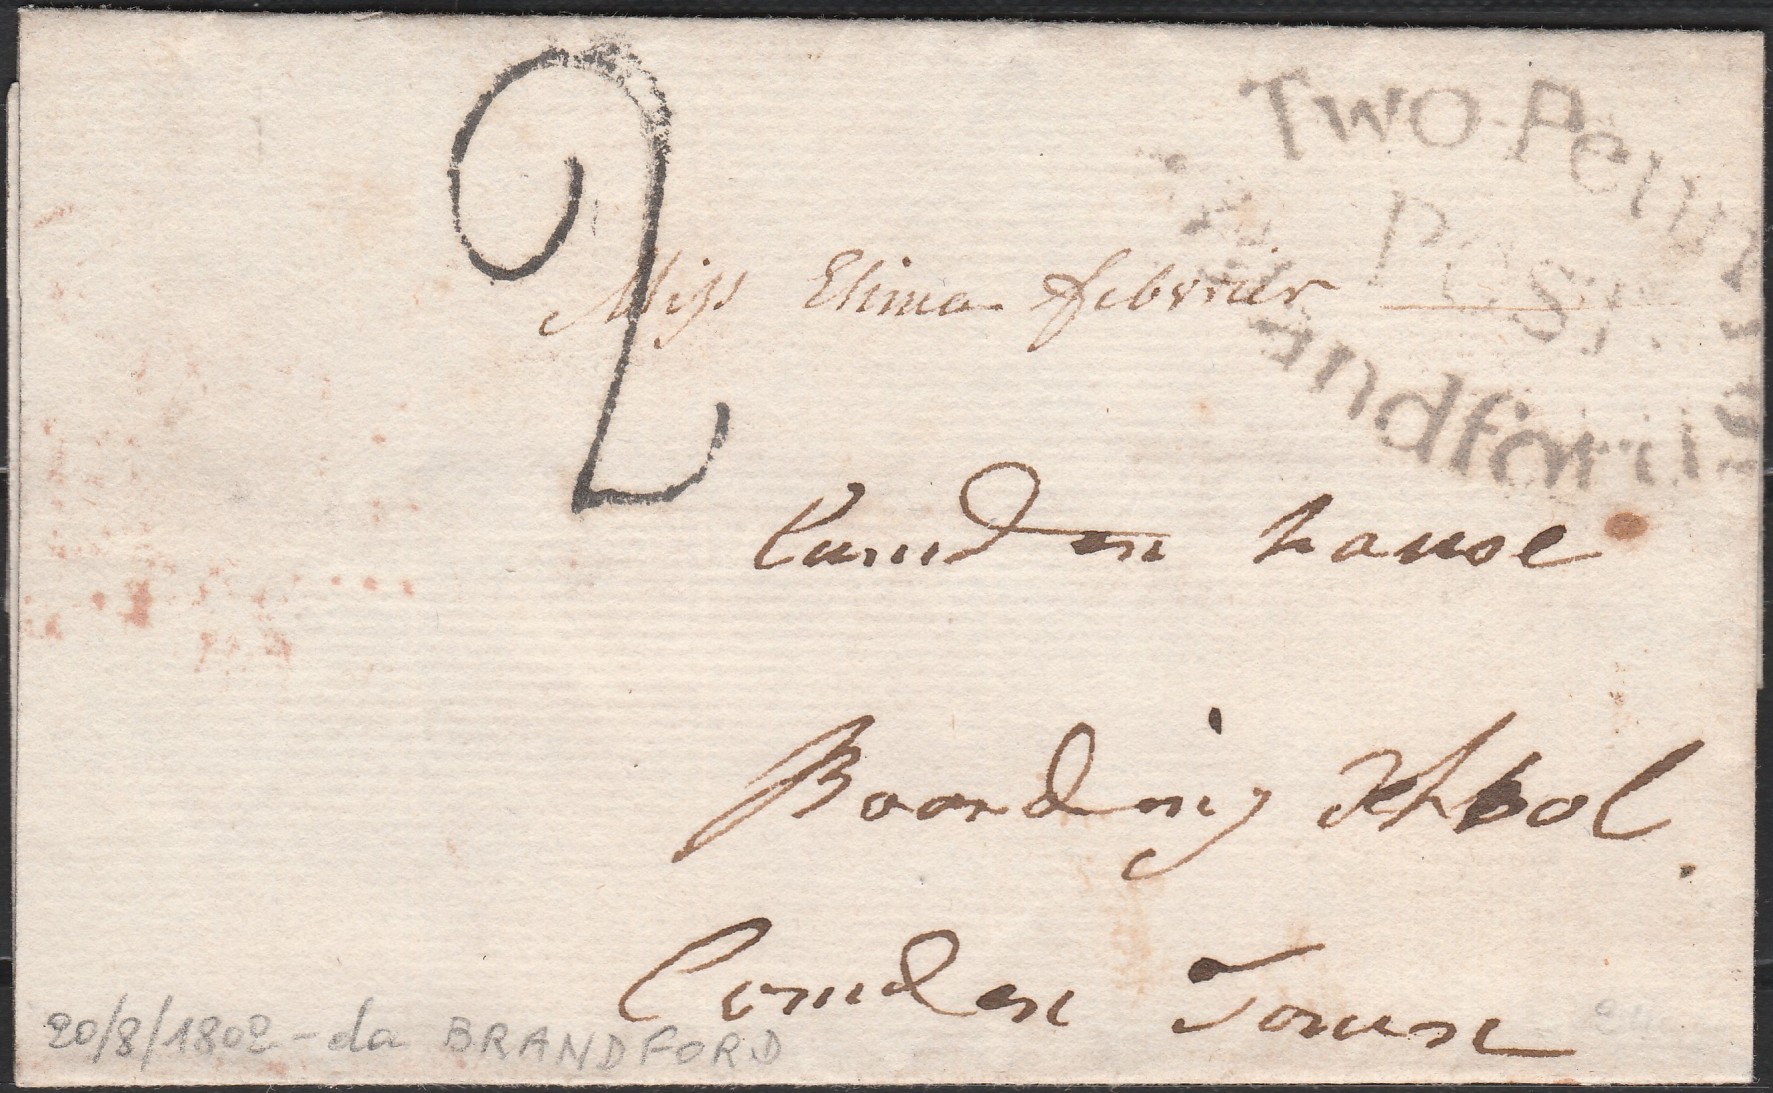 2
Two Penny
Post
Brandford
Miss Elima febvrier
Camden house
Boarding School.
Comden Town
20/8/1802 - da BRANDFORD